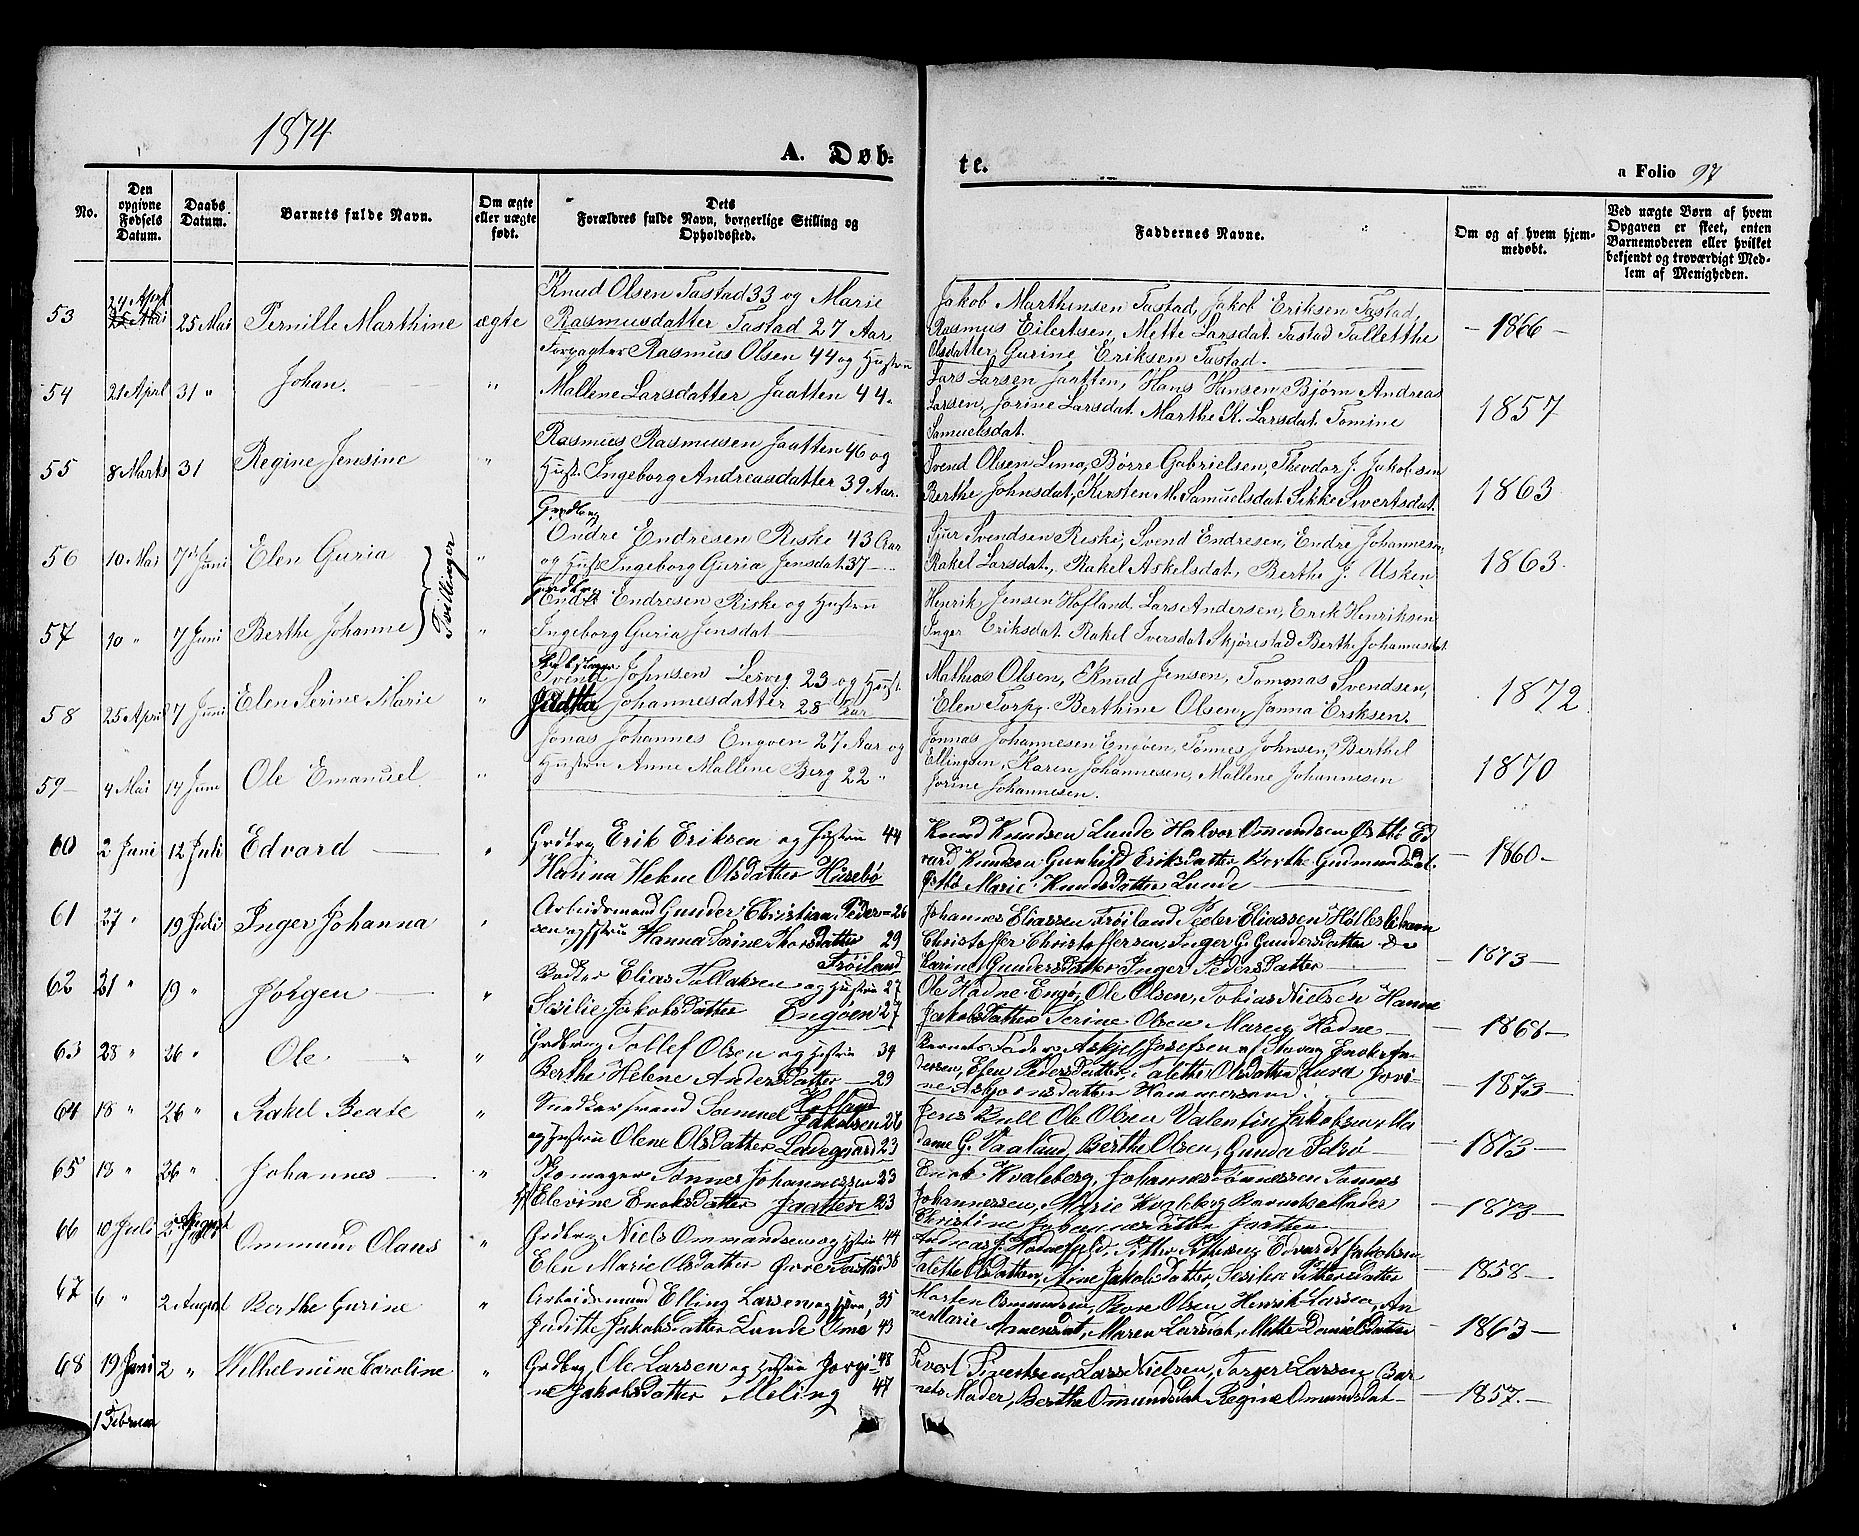 1874
A. Døb-
te.
a Folio 97
No.
Den opgivne Fødsels Datum.
Daabs Datum.
Barnets fulde Navn.
Om ægte eller uægte født.
Dets Forældres fulde Navn, borgerlige Stilling og Opholdssted.
Faddernes Navne.
Om og af hvem hjemmedøbt.
Ved uægte Børn af hvem Opgaven er skeet, enten Barnemoderen eller hvilket bekjendt og troværdigt Medlem af Menigheden.
53 24 April 25 Mai 25 Mai Pernille Marthine ægte
Knud Olsen Tastad 33 og Marie
Rasmusdatter Tastad 27 Aar
Jakob Marthinsen Tastad, Jakob Eriksen Tastad,
Rasmus Eilertsen, Mette Larsdat. Tastad Tallethe
Olsdatter, Gurine Eriksen Tastad.
- 1866 -
54 21 April 31 " Johan. "
Forpagter Rasmus Olsen 44 og Hustru
Mallene Larsdatter Jaatten 44.
Lars Larsen Jaatten, Hans Hansen, Bjørn Andreas
Larsen, Jorine Larsdat. Marthe K. Larsdat. Tomine
Samuelsdat.
1857
55 8 Marts 31 Regine Jensine "
Rasmus Rasmussen Jaatten 46 og
Hust. Ingeborg Andreasdatter 39 Aar.
Svend Olsen Lima, Børre Gabrielsen, Theodor J. Jakobsen
Berthe Johnsdat, Kirsten M. Samuelsdat. Sikke Sivertsdat.
1863
56 10 Mai 7 Juni Elen Guria Tvillinger "
Endre Endresen Riske 43 Aar
og Hust. Ingeborg Guria Jensdat. 37 -
Sjur Svendsen Riske, Svend Endresen, Endre Johannesen
Rakel Larsdat., Rakel Askelsdat., Berthe J. Usken
1863
57 10 " 7 Juni Berthe Johanne "
Endre Endresen Riske og Hustru
Ingeborg Guria Jensdat
Henrik Jensen Hofland, Lars Andersen, Erik Henriksen
Inger Eriksdat. Rakel Iversdat Skjørestad Berthe Johannesdat
58 25 April 7 Juni Elen Serine Marie "
Svend Johnsen Lervig 23 og Hust.
Johannesdatter 28 Aar
Mathias Olsen, Knud Jensen, Tommas Svendsen,
Elen Torp. Berthine Olsen, Janna Eriksen.
1872
59 - 4 Mai 14 Juni Ole Emanuel "
Jonas Johannes Engøen 27 Aar og
Hustru Anne Mallene Berg 22 "
Jonnas Johannesen Engøen, Tønnes Johnsen, Berthel
Ellingsen, Karen Johannesen, Mallene Johannesen
Jorine Johannesen.
1870
60 2 Juni 12 Juli Edvard "
Grdbrg Erik Eriksen og Hustru 44
Hanna Helene Olsdatter Husebö
Knud Knudsen Lunde Halvor Omundsen Østbö Ed
vard Knudsen Gunhild Eriksdatter Berthe Gudmundsdat.
Østbö Marie Knudsdatter Lunde
- 1860 -
61 27 " 19 Juli Inger Johanna "
Arbeidsmand Gunder Christian Peder- 26
sen og Hstru Hanna Serine Thorsdatter 29
Tröiland
Johannes Eliassen Tröiland Peder Eliassen Höllesle
Christoffer Christoffersen Inger G. Gundersdatter do
Karine Gundersdatter Inger Pedersdatter
- 1873 -
62 21 " 19 " Jörgen "
Bødker Elias Tollaksen og Hustru 27
Sesilie Jakobsdatter Engöen 27
Ole Hadne Engö, Ole Olsen, Tobias Nielsen Hanne
Jakobsdatter Serine Olsen Maren Hadne
- 1868 -
63 28 " 26 " Ole "
Grdbrug Tollef Olsen og Hustru 34
Berthe Helene Andersdatter 29
Hofland
Barnets Fader Askjel Josefsen af Stavang Enok An-
dersen, Elen Pedersdatter, Talette Olsdatter Lura Jori-
ne Asbjoernsdatter Hammersand.
- 1873 -
64 18 " 26 " Rakel Beate "
Snedkersvend Samuel Jakobsen 26
og Hustru Olene Olsdatter Ladegaard 23
Jens Bull Ole Olsen Valentin Jakobsen Ma
dame G. Vaaland, Berthe Olsen, Gunda Idsö
- 1873 -
65 13 " 26 " Johannes "
Skomager Tønnes Johannessen 23
Elevine Enoksdatter Jaatten 23
Enok Kvaleberg, Johannes Tönnessen Tønnes
Johannessen, Marie Kvaleberg Barnets Moder
Christine Johannesdatter Jaatten
- 1873 -
66 10 Juli 2 August Ommund Olaus "
Grdbrg Niels Ommundsen og Hustru 44
Elen Marie Olsdatter Øvre Tastad 36
Andreas J. Hadnefjeld, Edvardt Jakobsen
Talette Olsdatter, Arne Jakobsdatter, Sesilie Pettersdatter
- 1858 -
67 6 " 2 August Berthe Gurine "
Arbeidsmand Elling Larsen og Hstru 35
Judithe Jakobsdatter Lunde Ome 43
Morten Ommundsen, Bore Olsen Henrik Larsen, An
ne Marie Arnesdat, Maren Larsdat, Mette Danielsdatter
- 1863 -
68 19 Juni 2 " Wilhelmine Caroline "
Grdbrg Ole Larsen og Hustru Jorgi- 48
ne Jakobsdatter Meling 47
Sivert Sivertsen, Lars Nielsen, Torger Larsen Bar
nets Moder, Berthe Omundsdat Regine Omundsdat
- 1857. -
1 Februar